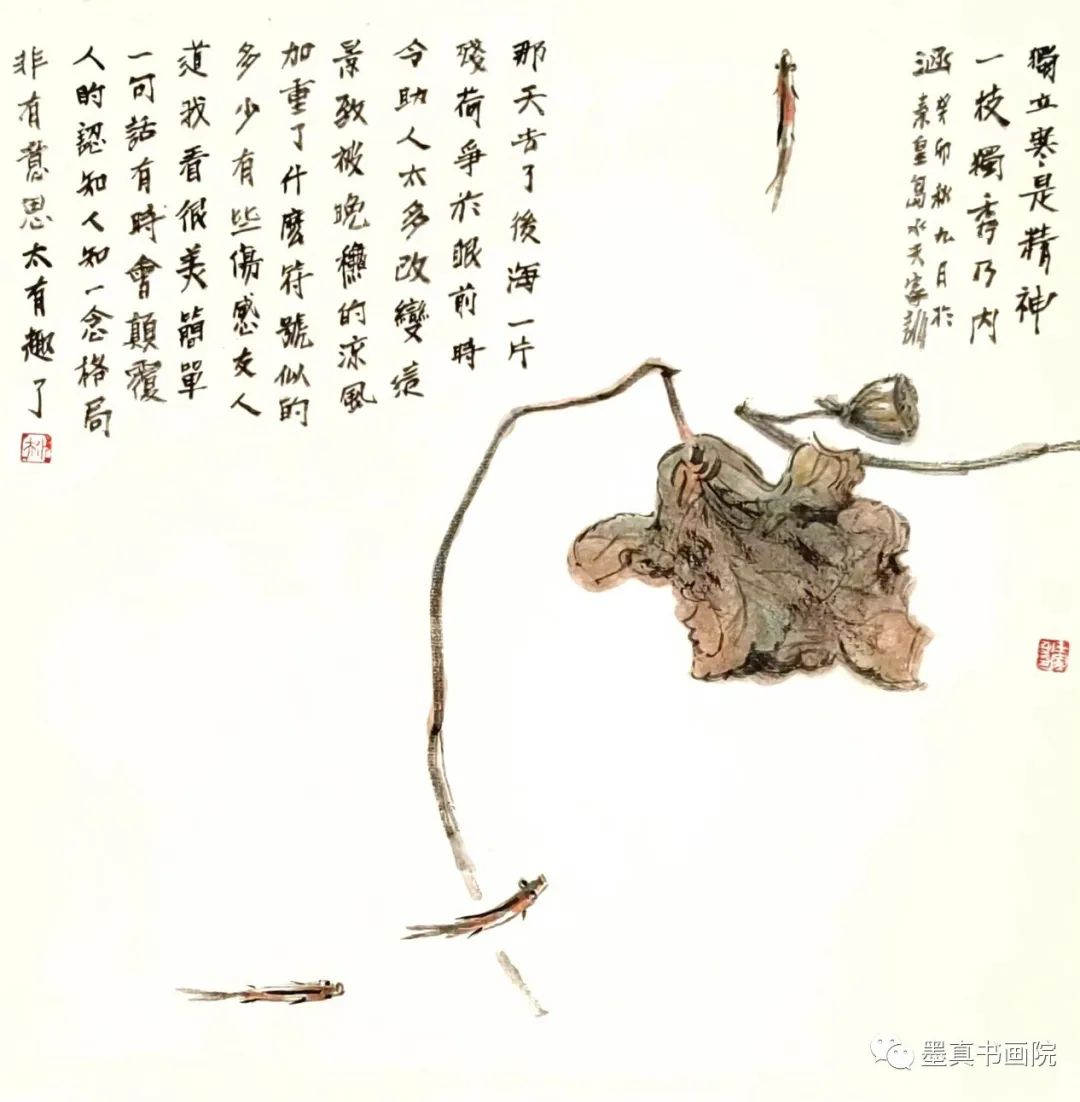 獨立寒是精神
一枝獨秀乃內
涵
癸卯秋九月於
秦皇島水天家
那天去了後海一片
殘荷爭於眼前時
令助人太多改變這
景致被晚穐的涼風
加重了什麼符號似的
多少有些傷感友人
道我看很美簡單
一句話有時會顛覆
人的認知人知一念格局
非有意思太有趣了
墨真书画院